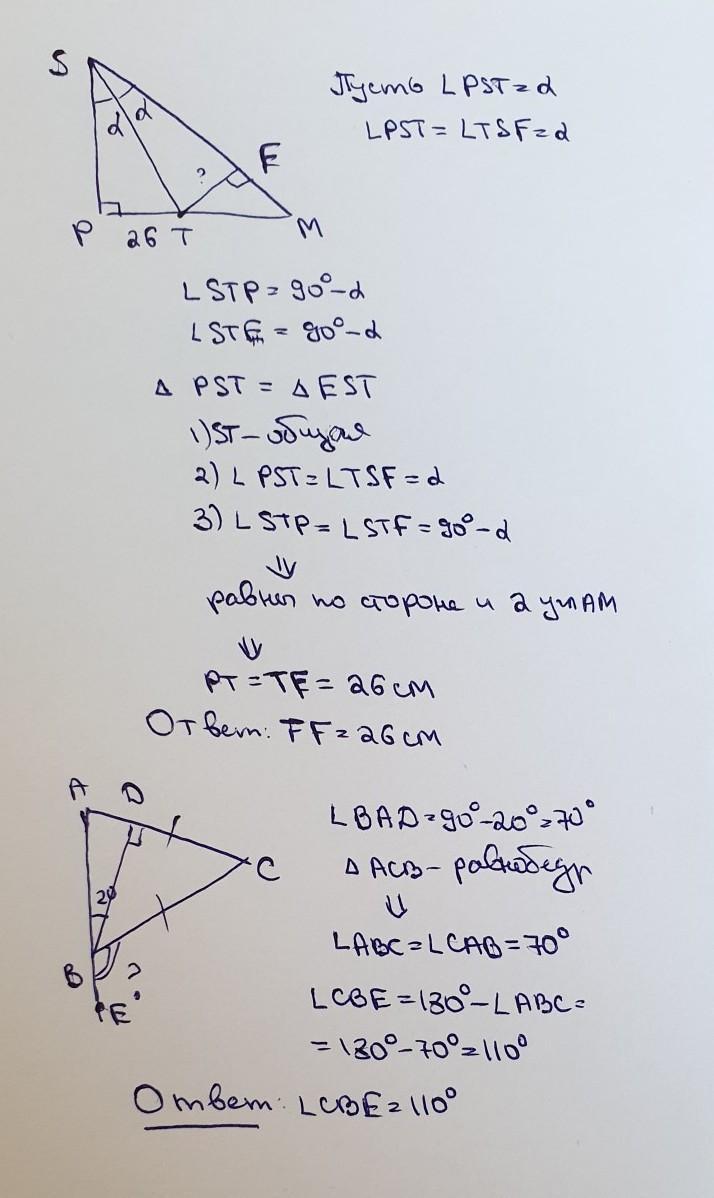 S
Пусть ∠PST=α
∠PST=∠TSF=α
α α
?
F
P 26 T M
∠STP=90°-α
∠STF=90°-α
Δ PST = Δ EST
1)ST-общая
2)∠PST=∠TSF=α
3)∠STP=∠STF=90°-α
⇓
равны по стороне и 2 углАМ
⇓
PT=TF=26см
Ответ: FF=26см
A D
C
20
B ?
E
∠BAD=90°-20°=70°
Δ ACB-равнобедр
⇓
∠ABC=∠CAB=70°
∠CBE=180°-∠ABC=
=180°-70°=110°
Ответ: ∠CBE=110°